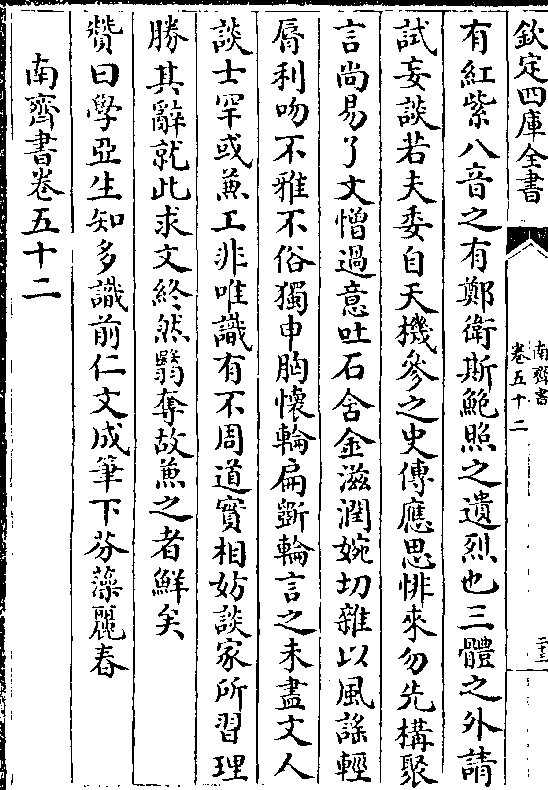 欽定四庫全書
南齊書
卷五十二
二十三
有紅紫八音之有鄭衛斯鮑照之遺烈也三體之外請
試妄談若夫委自天機參之史傳應思悱來勿先構聚
言尚易了文憎過意吐石含金滋潤婉切雜以風謠輕
脣利吻不雅不俗獨申胸懷輪扁斲輪言之未盡文人
談士罕或兼工非唯識有不周道實相妨談家所習理
勝其辭就此求文終然翳奪故兼之者鮮矣
贊曰學亞生知多識前仁文成筆下芬藻麗春
南齊書卷五十二